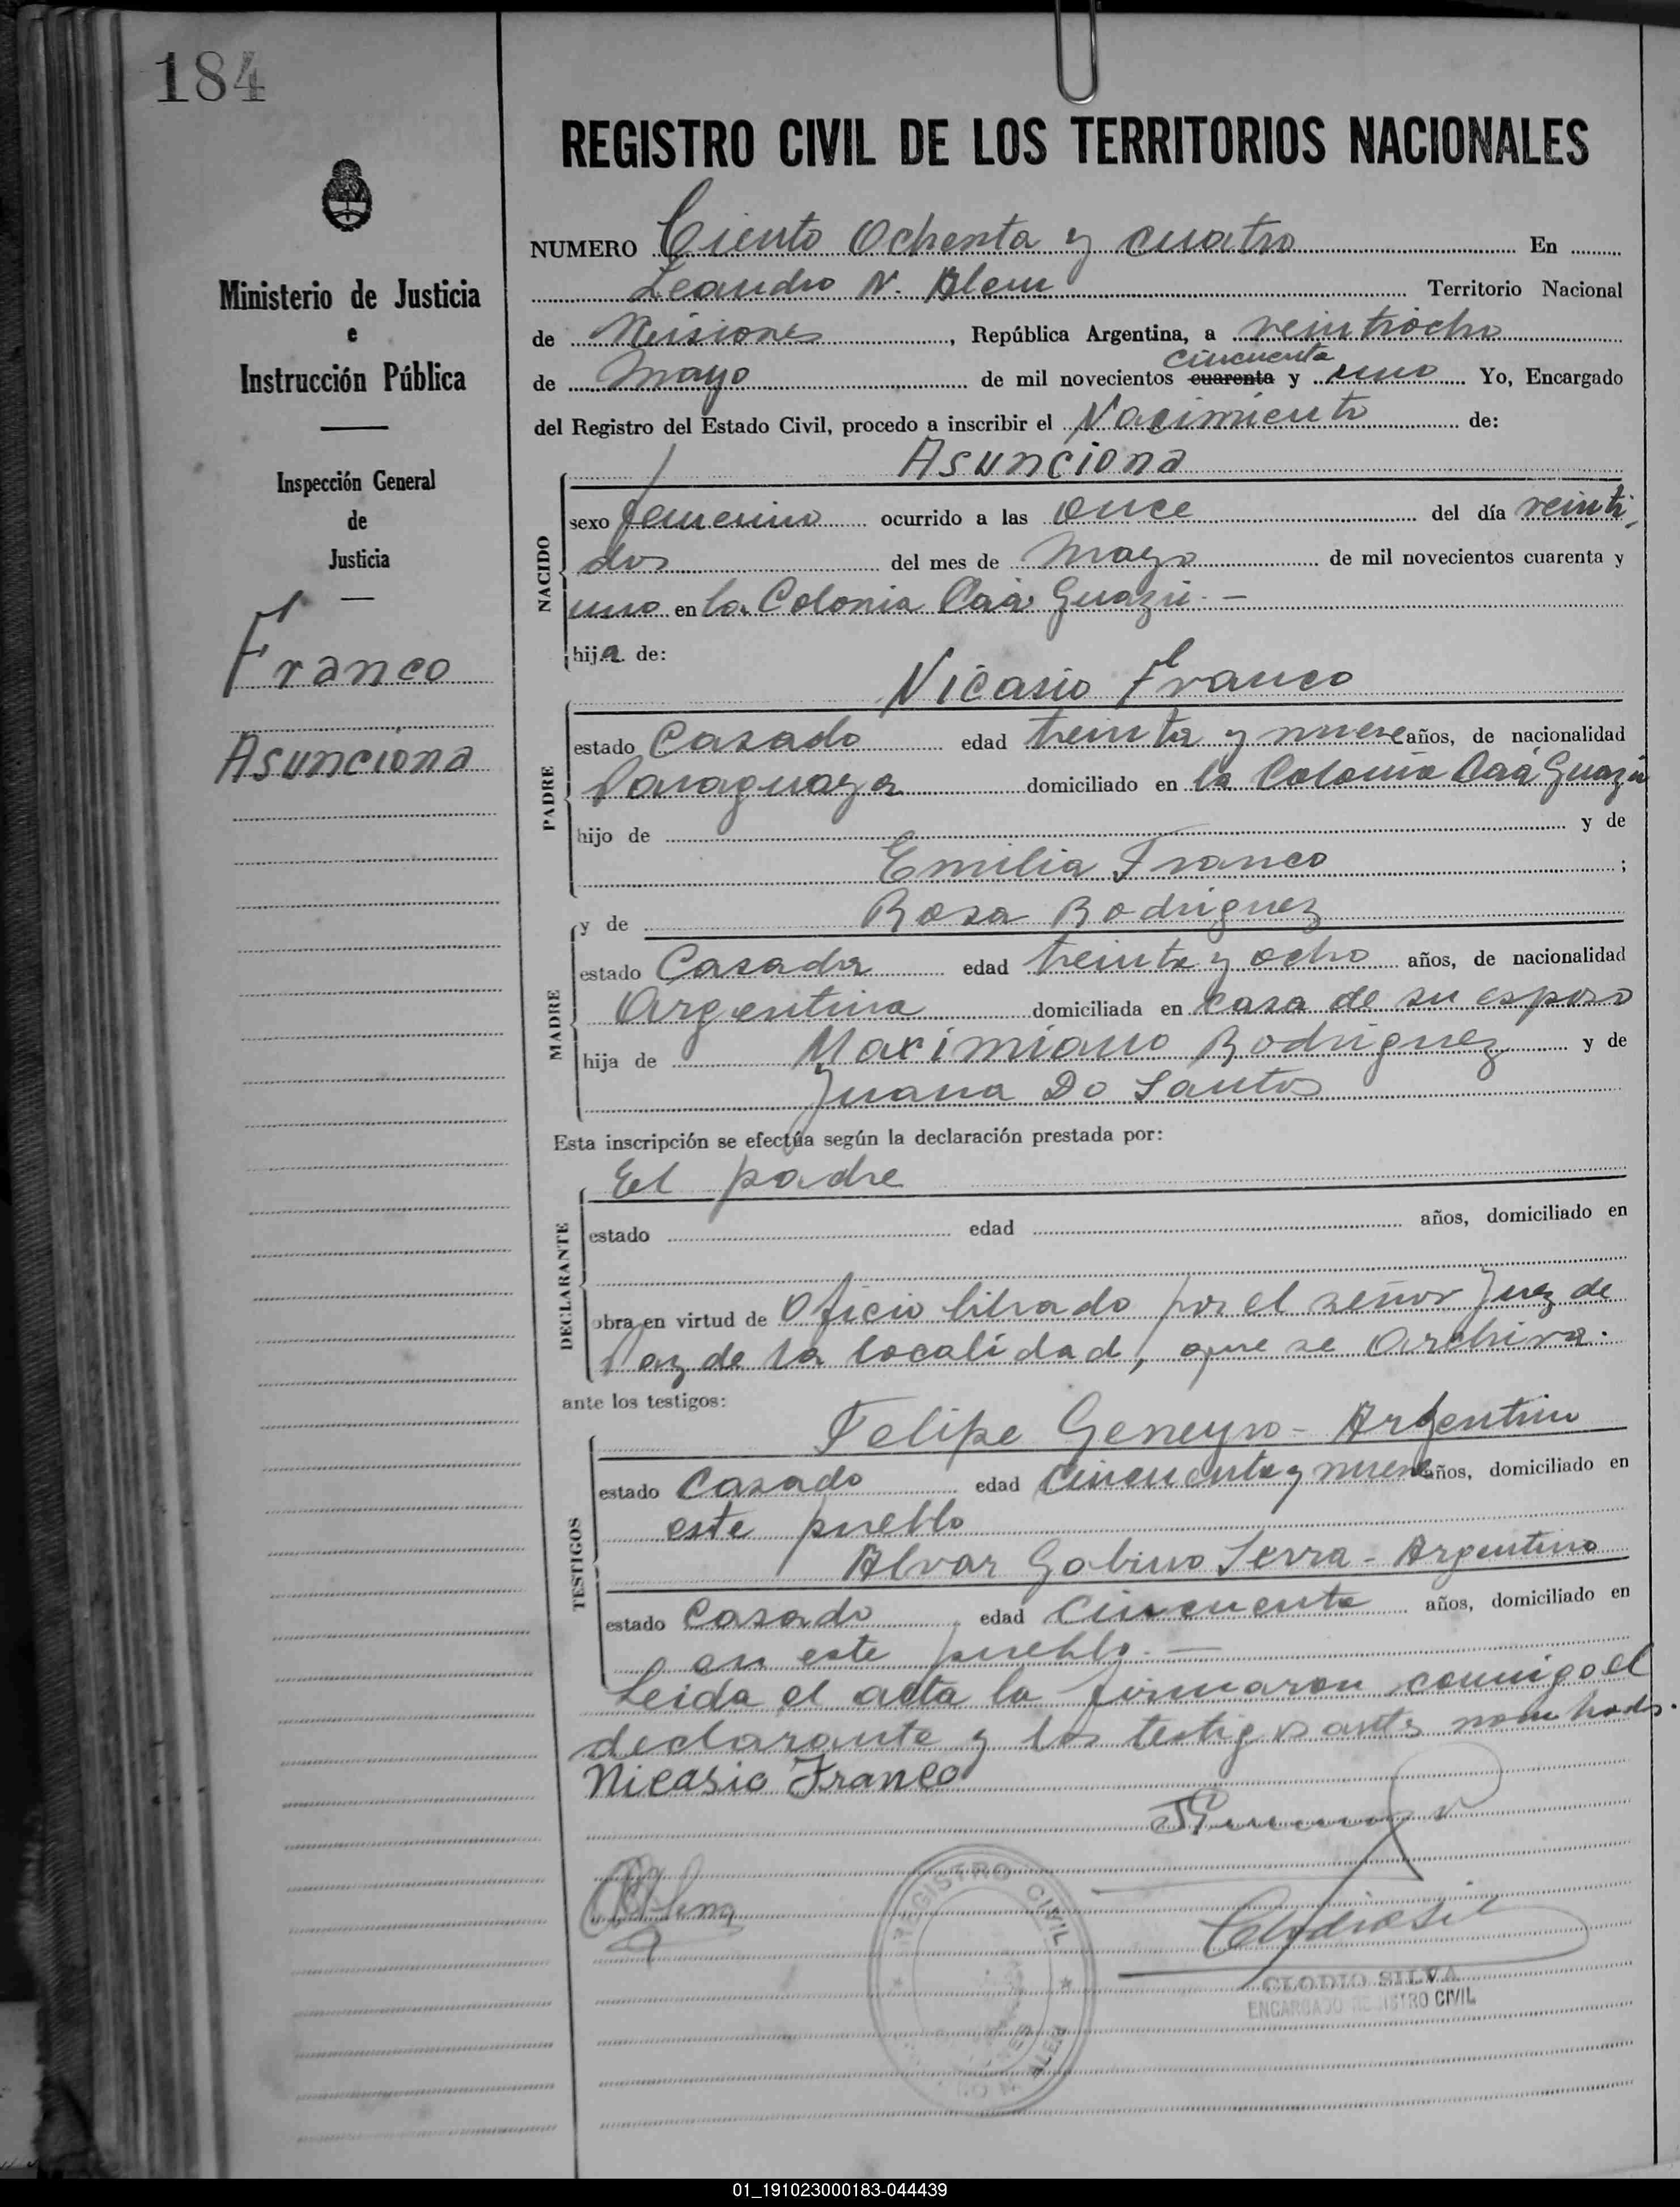 184
REGISTRO CIVIL DE LOS TERRITORIOS NACIONALES
Ministerio de Justicia
e
Instrucción Pública
Inspección General
de
Justicia
Franco
Asunciona
NUMERO Ciento Ochenta y cuatro En
Leandro N. Alem Territorio Nacional
de Misiones, República Argentina, a veintiocho
cincuenta
de Mayo de mil novecientos cuarenta y uno Yo, Encargado
del Registro del Estado Civil, procedo a inscribir el Nacimiento de:
Asunciona
NACIDO
sexo femenino ocurrido a las once del día veinti-
dos del mes de Mayo de mil novecientos cuarenta y
uno en la Colonia Caá Guazú.-
hija de:
Nicasio Franco
PADRE
estado Casado edad treinta y nueve años, de nacionalidad
Paraguaya domiciliado en la Colonia Caá Guazú
hijo de y de
Emilia Franco ;
y de Rosa Rodriguez
MADRE
estado Casada edad treinta y ocho años, de nacionalidad
Argentina domiciliada en casa de su esposo
hija de Maximiano Rodriguez y de
Juana Do Santos
Esta inscripción se efectúa según la declaración prestada por:
El padre
DECLARANTE
estado edad años, domiciliado en
obra en virtud de Oficio librado por el señor Juez de
Paz de la localidad, que se archiva.
ante los testigos:
Felipe Geneyro - Argentino
TESTIGOS
estado Casado edad cincuenta y nueve años, domiciliado en
este pueblo
Alvar Gabino Serra - Argentino
estado Casado edad Cincuenta años, domiciliado en
en este pueblo.-
Leida el acta la firmaron conmigo el
declarante y los testigos antes nombrados.
Nicasio Franco
REGISTRO CIVIL
ALEM
CLODIO SILVA
ENCARGADO REGISTRO CIVIL
01_191023000183-044439